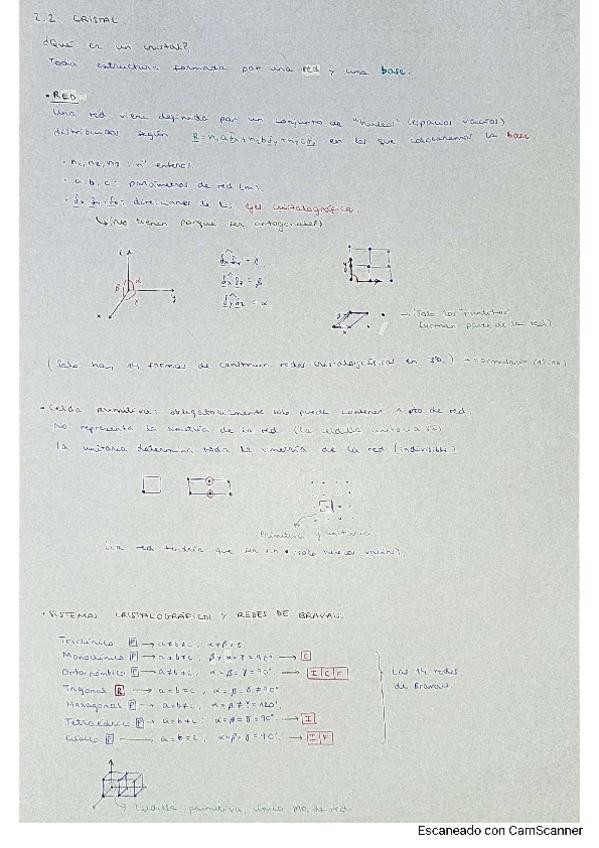 2.2 CRISTAL.
¿Qué es un cristal?
Toda estructura formada por una red y una base.
• RED
Una red viene definida por un conjunto de "huecos" (espacios vacíos)
distribuidos según R = n₁ax̂ + n₂bŷ + n₃cẑ en los que colocaremos la base.
• n₁, n₂, n₃ : nº enteros.
• a, b, c : parámetros de red (m).
direcciones de los ejes cristalográficos.
↳ (No tienen porqué ser ortogonales)
β α
γ
y
x
= γ
= β
= α
→ (Solo los "puntitos"
forman parte de la red)
(Solo hay 14 formas de construir redes cristalográficas en 3D.) → Formulario
• Celda primitiva: obligatoriamente solo puede contener 1 pto de red.
No representa la simetría de la red (la celdilla unitaria sí)
La unitaria determina toda la simetría de la red (indivisible)
Primitiva y unitaria
(La red tendría que ser sin • solo huecos vacíos).
• SISTEMAS CRISTALOGRÁFICOS Y REDES DE BRAVAIS.
Triclínico P → a≠b≠c, α≠β≠γ
Monoclínico P → a≠b≠c, β≠α=γ=90° → C
Ortorrómbico P → a≠b≠c, α=β=γ=90° → I C F
Trigonal R → a=b=c, α=β=γ≠90°
Hexagonal P → a=b≠c, α=β≠γ=120°.
Tetraédrico P → a=b≠c: α=β=γ=90° → I
Cúbico P → a=b=c, α=β=γ=90° → I F
Las 14 redes
de Bravais
Celdilla primitiva, único de red
Escaneado con CamScanner